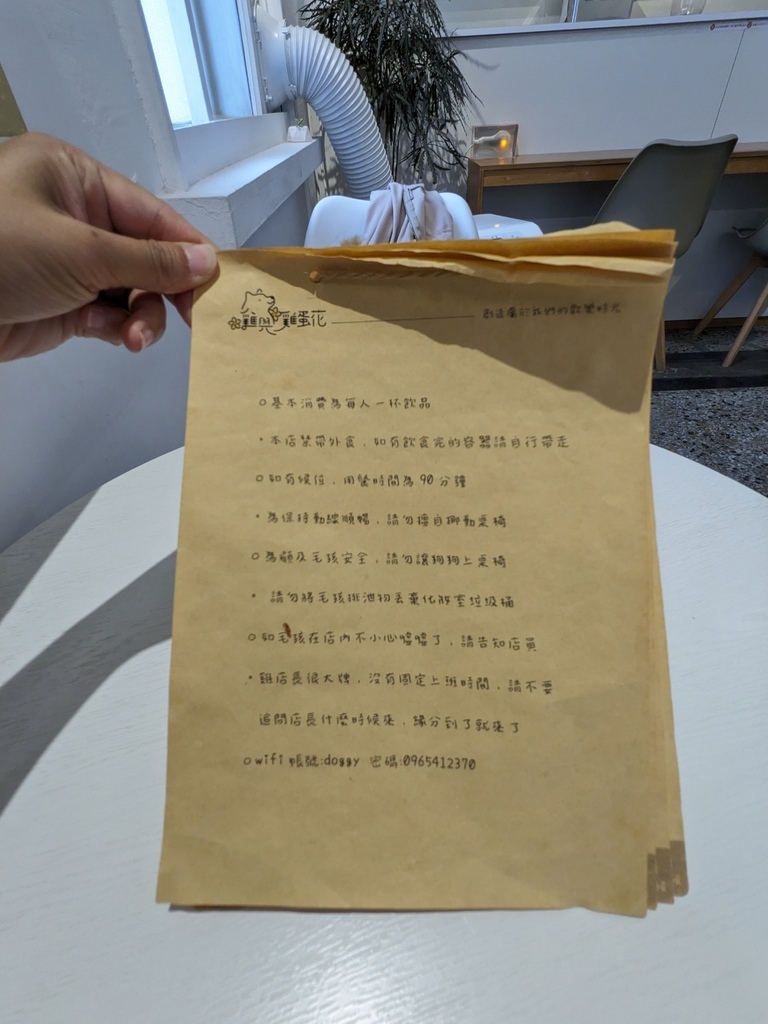 雞與雞蛋花
創造屬於我們的歡樂時光
基本消費為每人一杯飲品
本店禁帶外食，如有飲食完的容器請自行帶走
如有候位，用餐時間為 90 分鐘
為保持動線順暢，請勿擅自挪動桌椅
為顧及毛孩安全，請勿讓狗狗上桌椅
請勿將毛孩排泄物丟棄化妝室垃圾桶
如毛孩在店內不小心噓噓了，請告知店員
雞店長很大牌，沒有固定上班時間，請不要
追問店長什麼時候來，緣分到了就來了
wifi 帳號:doggy 密碼:0965412370